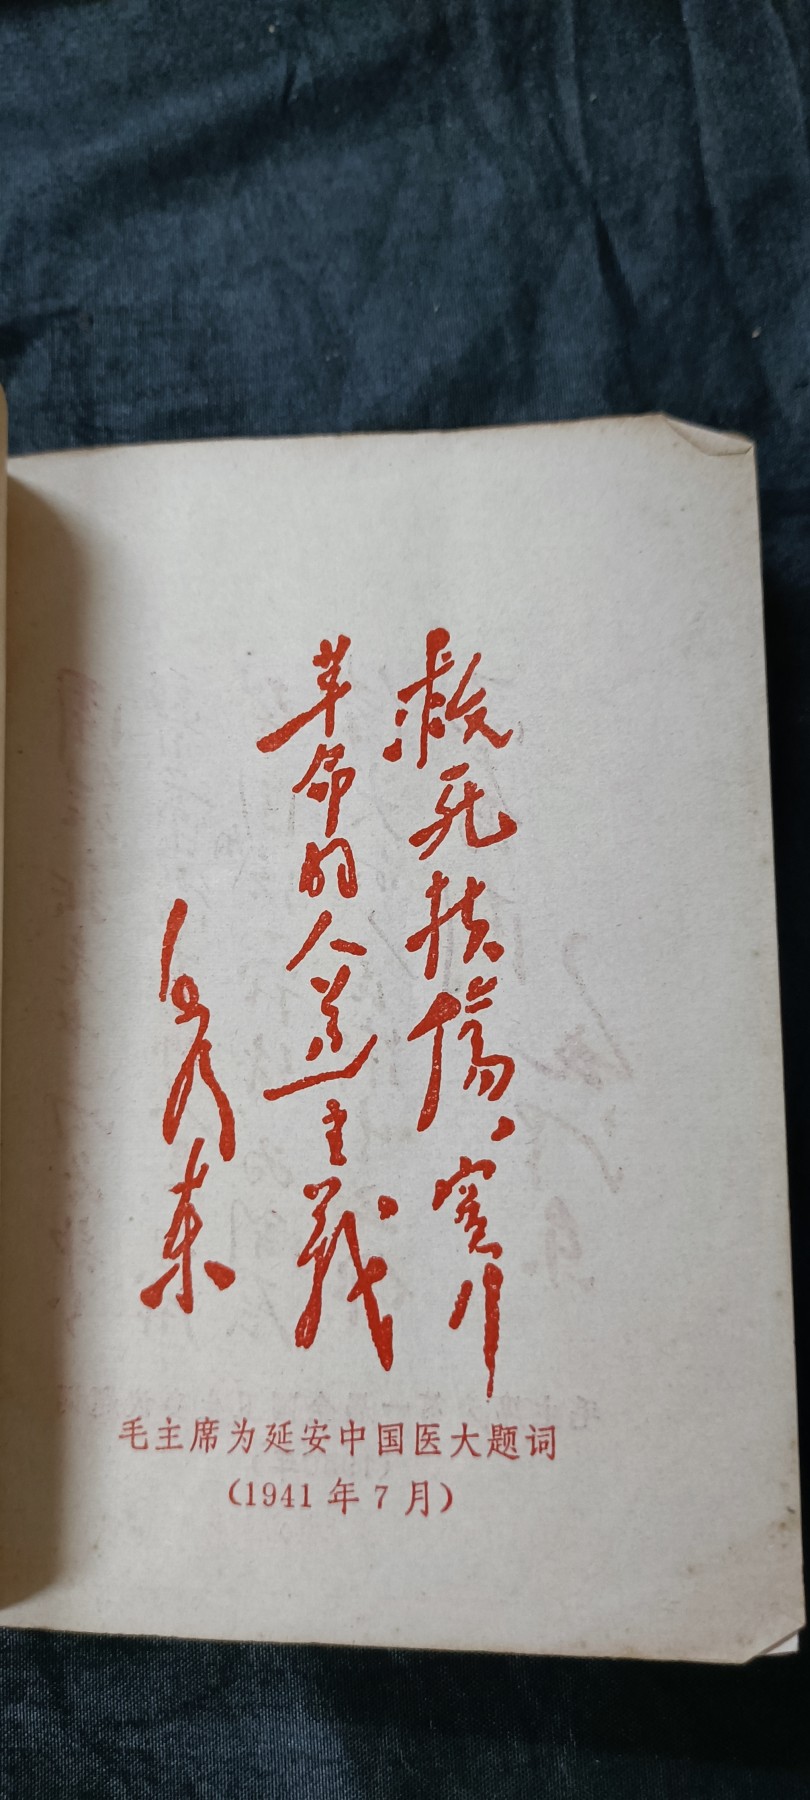 救死扶傷、實行
革命的人道主義
毛澤東
毛主席为延安中国医大题词
(1941年7月)